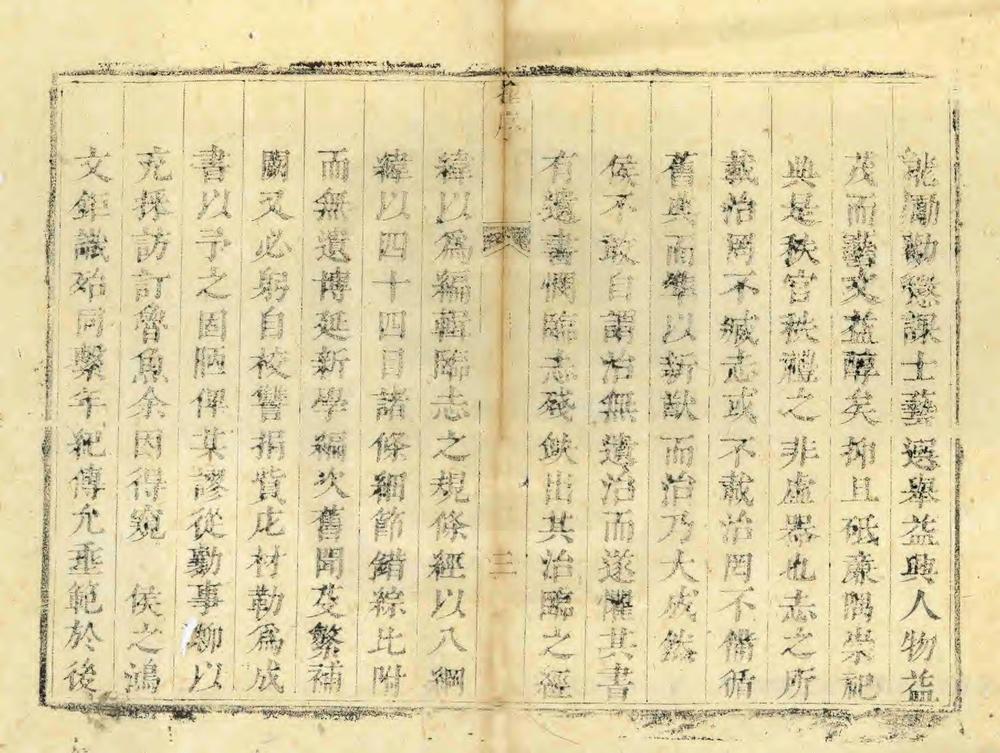 訛勵勸懲課士藝選舉益典人物益
茂而藝文益醇矣抑且砥廉隅崇祀
典是秩官秩禮之非虛器也志之所
載治罔不臧志或不載治罔不備循
舊典而準以新猷而治乃大成然
侯不敢自謂治無遺治而遂懼其書
有遺書憫臨志殘缺出其治臨之經
緯以為編輯臨志之規條經以八綱
緯以四十四目諸條細節錯綜比附
而無遺博延新學編次舊聞芟繁補
闕又必躬自校讐捐貲庀材勒為成
書以予之固陋俾某謬從勤事聊以
充採訪訂魯魚余因得窺 侯之鴻
文鉅識殆同繫年紀傳允垂範於後
崔序
三